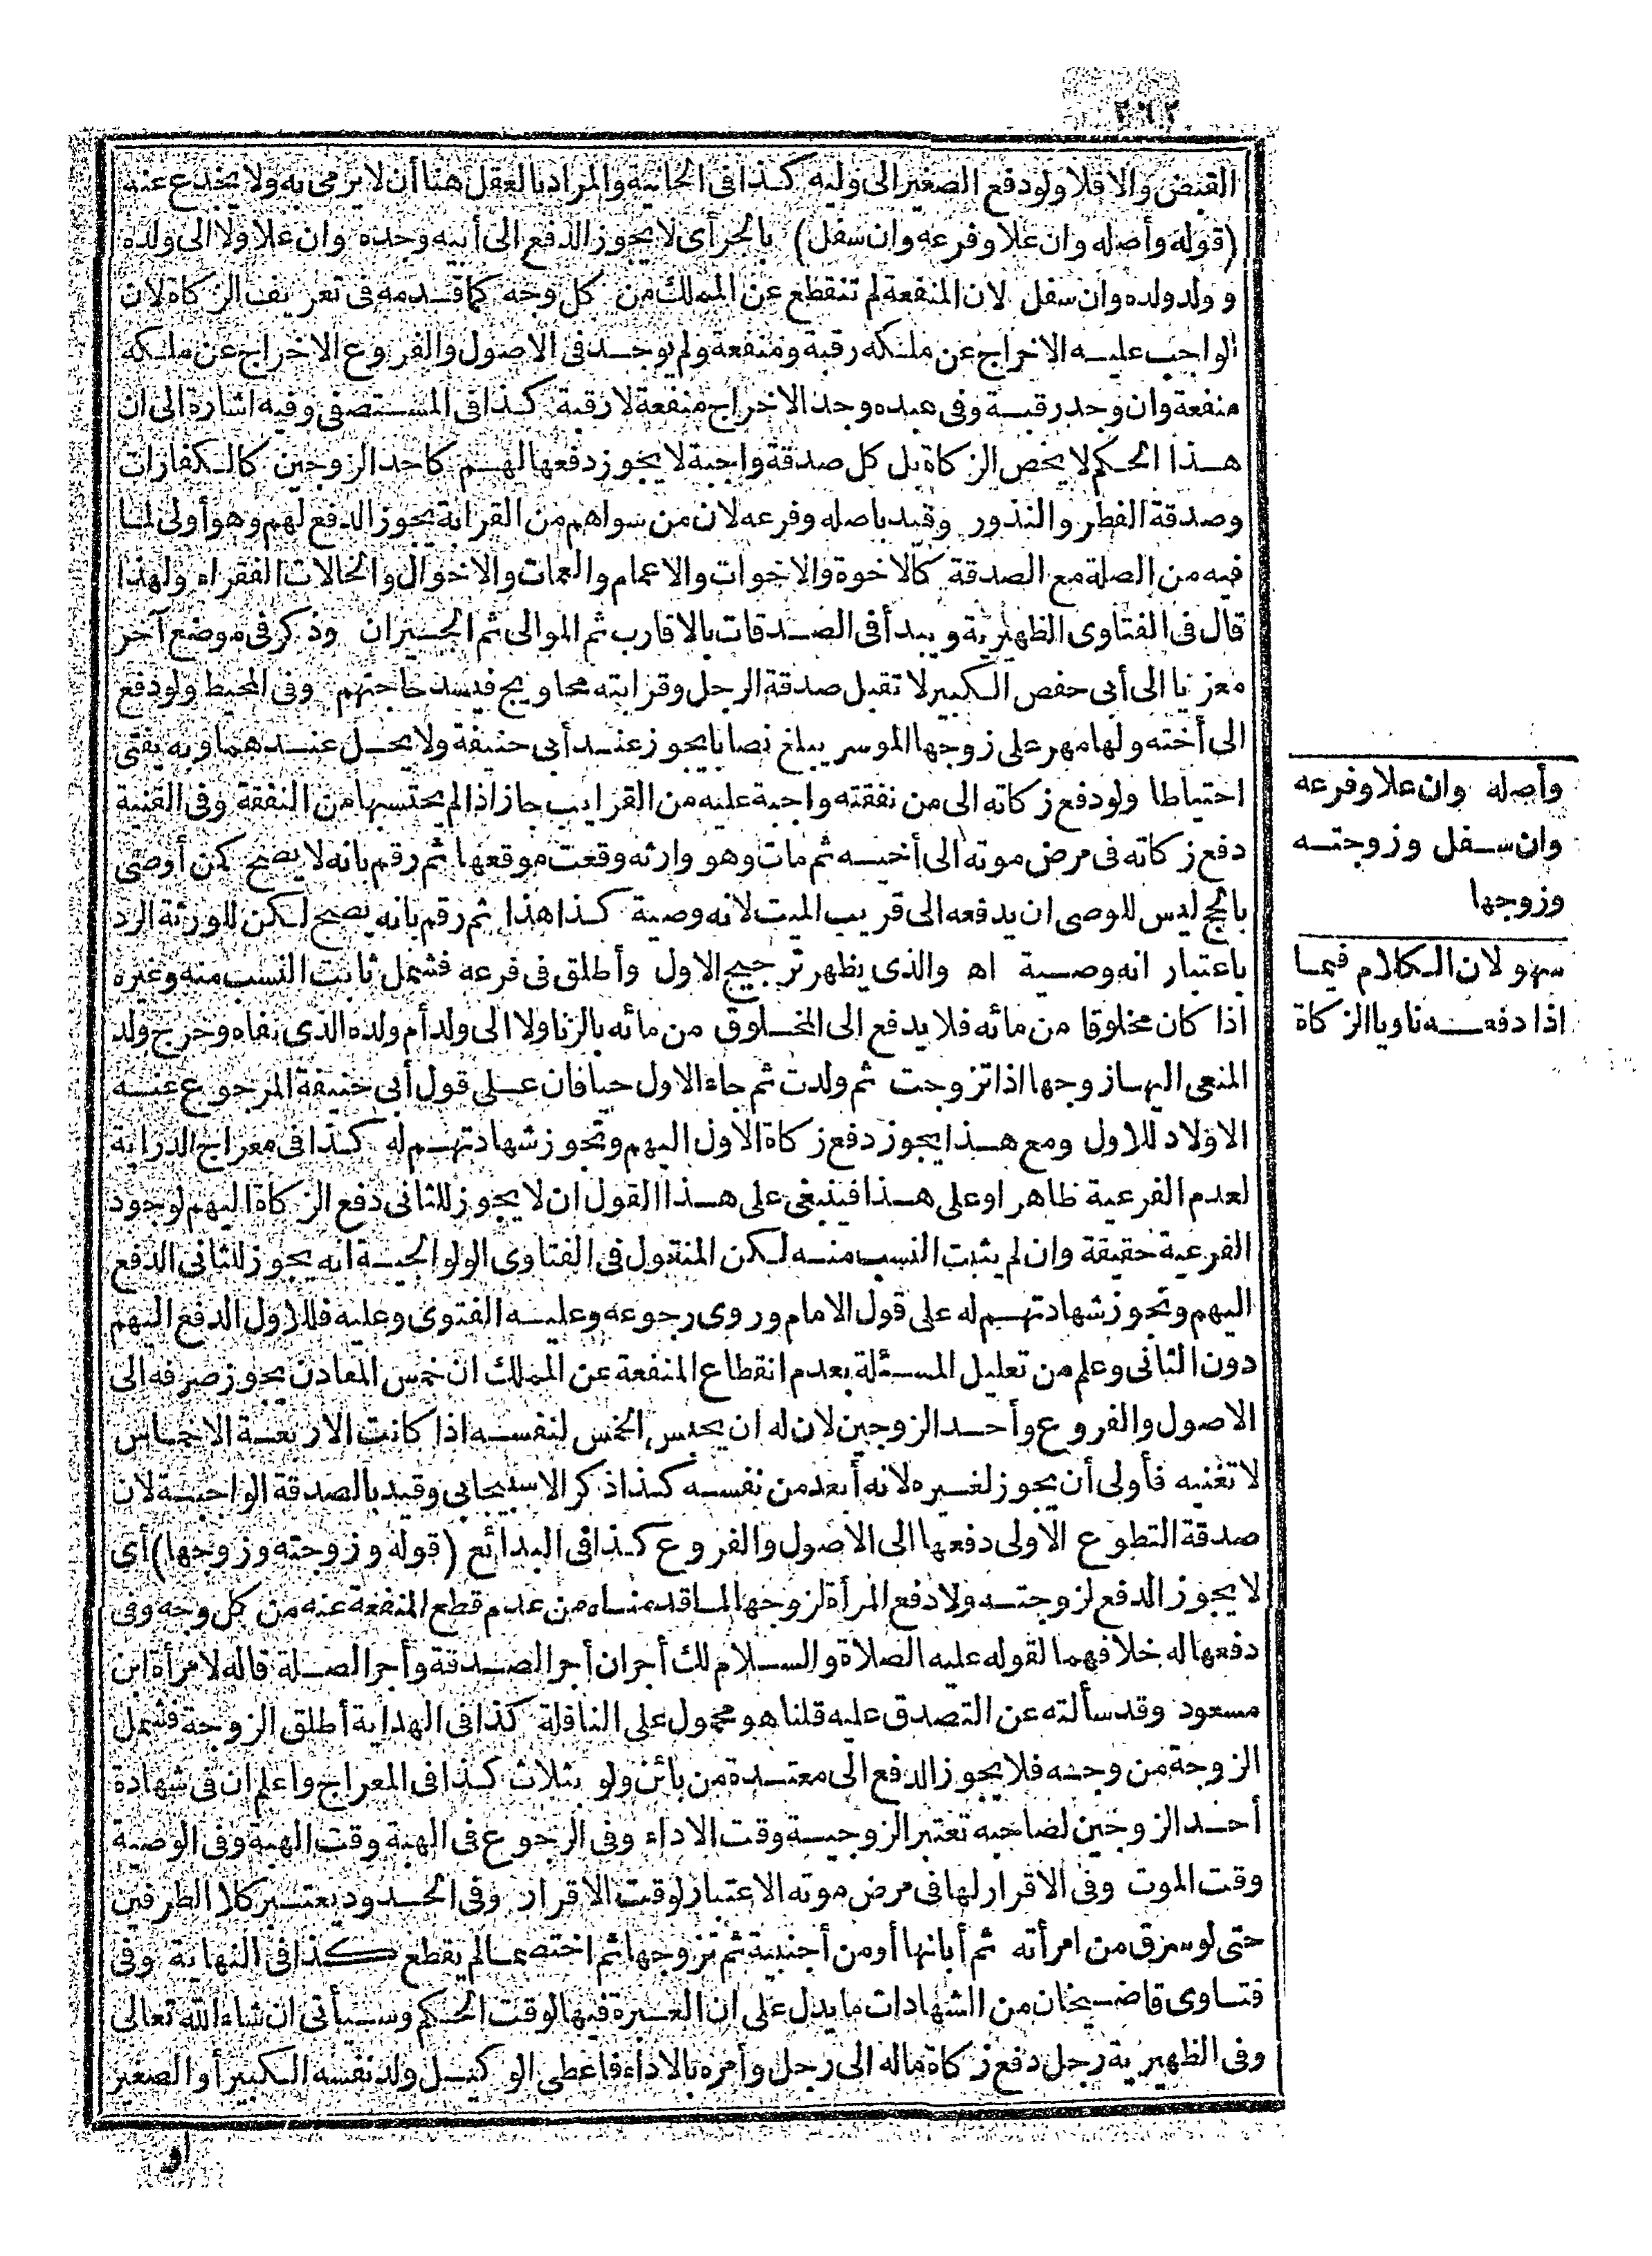 القبض والا فلا ولو دفع الصغير الى وليه كذا فى الخانية والمراد بالعقل هنا أن لا يرمى به ولا يخدع عنه
(قوله وأصله وان علا وفرعه وان سفل) بالجر أى لا يجوز الدفع الى أبيه وجده وان علا ولا الى ولده
وولد ولده وان سفل لان المنفعة لم تنقطع عن المملك من كل وجه كما قدمه فى تعريف الزكاة لان
الواجب عليه الاخراج عن ملكه رقبة ومنفعة ولم يوجد فى الاصول والفروع الاخراج عن ملكه
منفعة وان وجد رقبة وفى عبده وجد الاخراج منفعة لا رقبة كذا فى المستصفى وفيه اشارة الى ان
هذا الحكم لا يخص الزكاة بل كل صدقة واجبة لا يجوز دفعها لهم كاحد الزوجين كالكفارات
وصدقة الفطر والنذور وقيد باصله وفرعه لان من سواهم من القرابة يجوز الدفع لهم وهو أولى لما
فيه من الصلة مع الصدقة كالاخوة والاخوات والاعمام والعمات والاخوال والخالات الفقراء ولهذا
قال فى الفتاوى الظهيرية ويبدأ فى الصدقات بالاقارب ثم الموالى ثم الجيران وذكر فى موضع آخر
معزيا الى أبى حفص الكبير لا تقبل صدقة الرجل وقرابته محاويج فيسد حاجتهم وفى المحيط ولو دفع
الى أخته ولها مهر على زوجها الموسر يبلغ نصابا يجوز عند أبى حنيفة ولا يحل عندهما وبه يفتى
احتياطا ولو دفع زكاته الى من نفقته واجبة عليه من القرايب جاز اذا لم يحتسبها من النفقة وفى القنية
دفع زكاته فى مرض موته الى أخيه ثم مات وهو وارثه وقعت موقعها ثم رقم بانه لا يصح كمن أوصى
بالحج ليس للوصى ان يدفعه الى قريب الميت لانه وصية كذا هذا ثم رقم بانه يصح لكن للورثة الرد
باعتبار انه وصية اه والذى يظهر ترجيح الاول وأطلق فى فرعه فشمل ثابت النسب منه وغيره
اذا كان مخلوقا من مائه فلا يدفع الى المخلوق من مائه بالزنا ولا الى ولد أم ولده الذى نفاه وخرج ولد
المنعى اليها زوجها اذا تزوجت ثم ولدت ثم جاء الاول حيا فان على قول أبى حنيفة المرجوع عنه
الاولاد للاول ومع هذا يجوز دفع زكاة الاول اليهم وتجوز شهادتهم له كذا فى معراج الدراية
لعدم الفرعية ظاهرا وعلى هذا فينبغى على هذا القول ان لا يجوز للثانى دفع الزكاة اليهم لوجود
الفرعية حقيقة وان لم يثبت النسب منه لكن المنقول فى الفتاوى الولوالجية انه يجوز للثانى الدفع
اليهم وتجوز شهادتهم له على قول الامام وروى رجوعه وعليه الفتوى وعليه فللاول الدفع اليهم
دون الثانى وعلم من تعليل المسئلة بعدم انقطاع المنفعة عن المملك ان خمس المعادن يجوز صرفه الى
الاصول والفروع وأحد الزوجين لان له ان يحبس الخمس لنفسه اذا كانت الاربعة الاخماس
لا تغنيه فأولى أن يجوز لغيره لانه أبعد من نفسه كذا ذكر الاسبيجابى وقيد بالصدقة الواجبة لان
صدقة التطوع الاولى دفعها الى الاصول والفروع كذا فى البدائع (قوله وزوجته وزوجها) أى
لا يجوز الدفع لزوجته ولا دفع المرأة لزوجها لما قدمناه من عدم قطع المنفعة عنه من كل وجه وفى
دفعها له خلافهما لقوله عليه الصلاة والسلام لك أجران أجر الصدقة وأجر الصلة قاله لامرأة ابن
مسعود وقد سألته عن التصدق عليه قلنا هو محمول على النافلة كذا فى الهداية أطلق الزوجة فشمل
الزوجة من وجه فلا يجوز الدفع الى معتدة من بائن ولو بثلاث كذا فى المعراج واعلم ان فى شهادة
أحد الزوجين لصاحبه تعتبر الزوجية وقت الاداء وفى الرجوع فى الهبة وقت الهبة وفى الوصية
وقت الموت وفى الاقرار لها فى مرض موته الاعتبار لوقت الاقرار وفى الحدود يعتبر كلا الطرفين
حتى لو سرق من امرأته ثم أبانها أو من أجنبية ثم تزوجها ثم اختصما لم يقطع كذا فى النهاية وفى
فتاوى قاضيخان من الشهادات ما يدل على ان العبرة فيها لوقت الحكم وسيأتى ان شاء الله تعالى
وفى الظهيرية رجل دفع زكاة ماله الى رجل وأمره بالاداء فاعطى الوكيل ولد نفسه الكبير أو الصغير
أو
وأصله وان علا وفرعه
وان سفل وزوجته
وزوجها
سهو لان الكلام فيما
اذا دفعه ناويا الزكاة